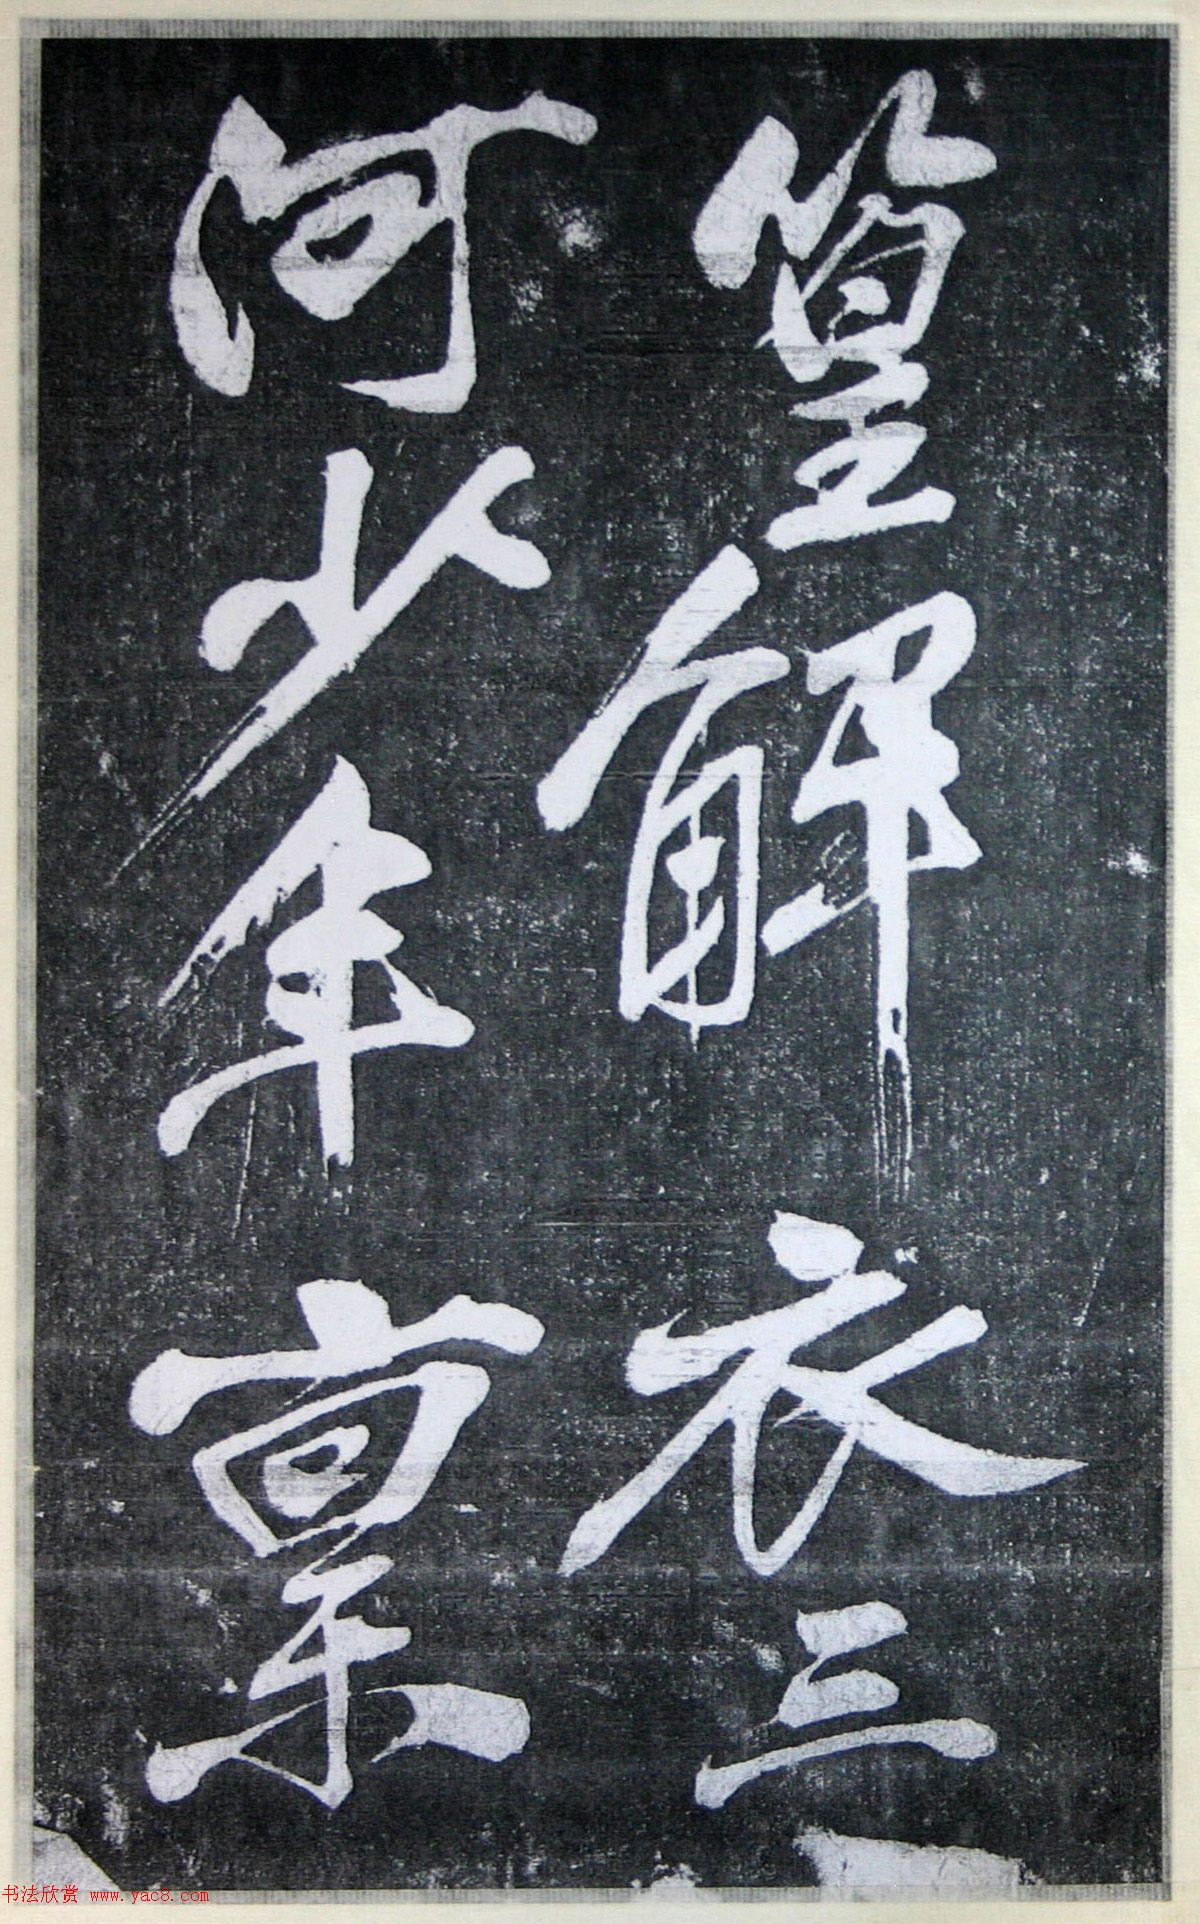 篁解衣三
河少年稟
书法欣赏 www.yac8.com